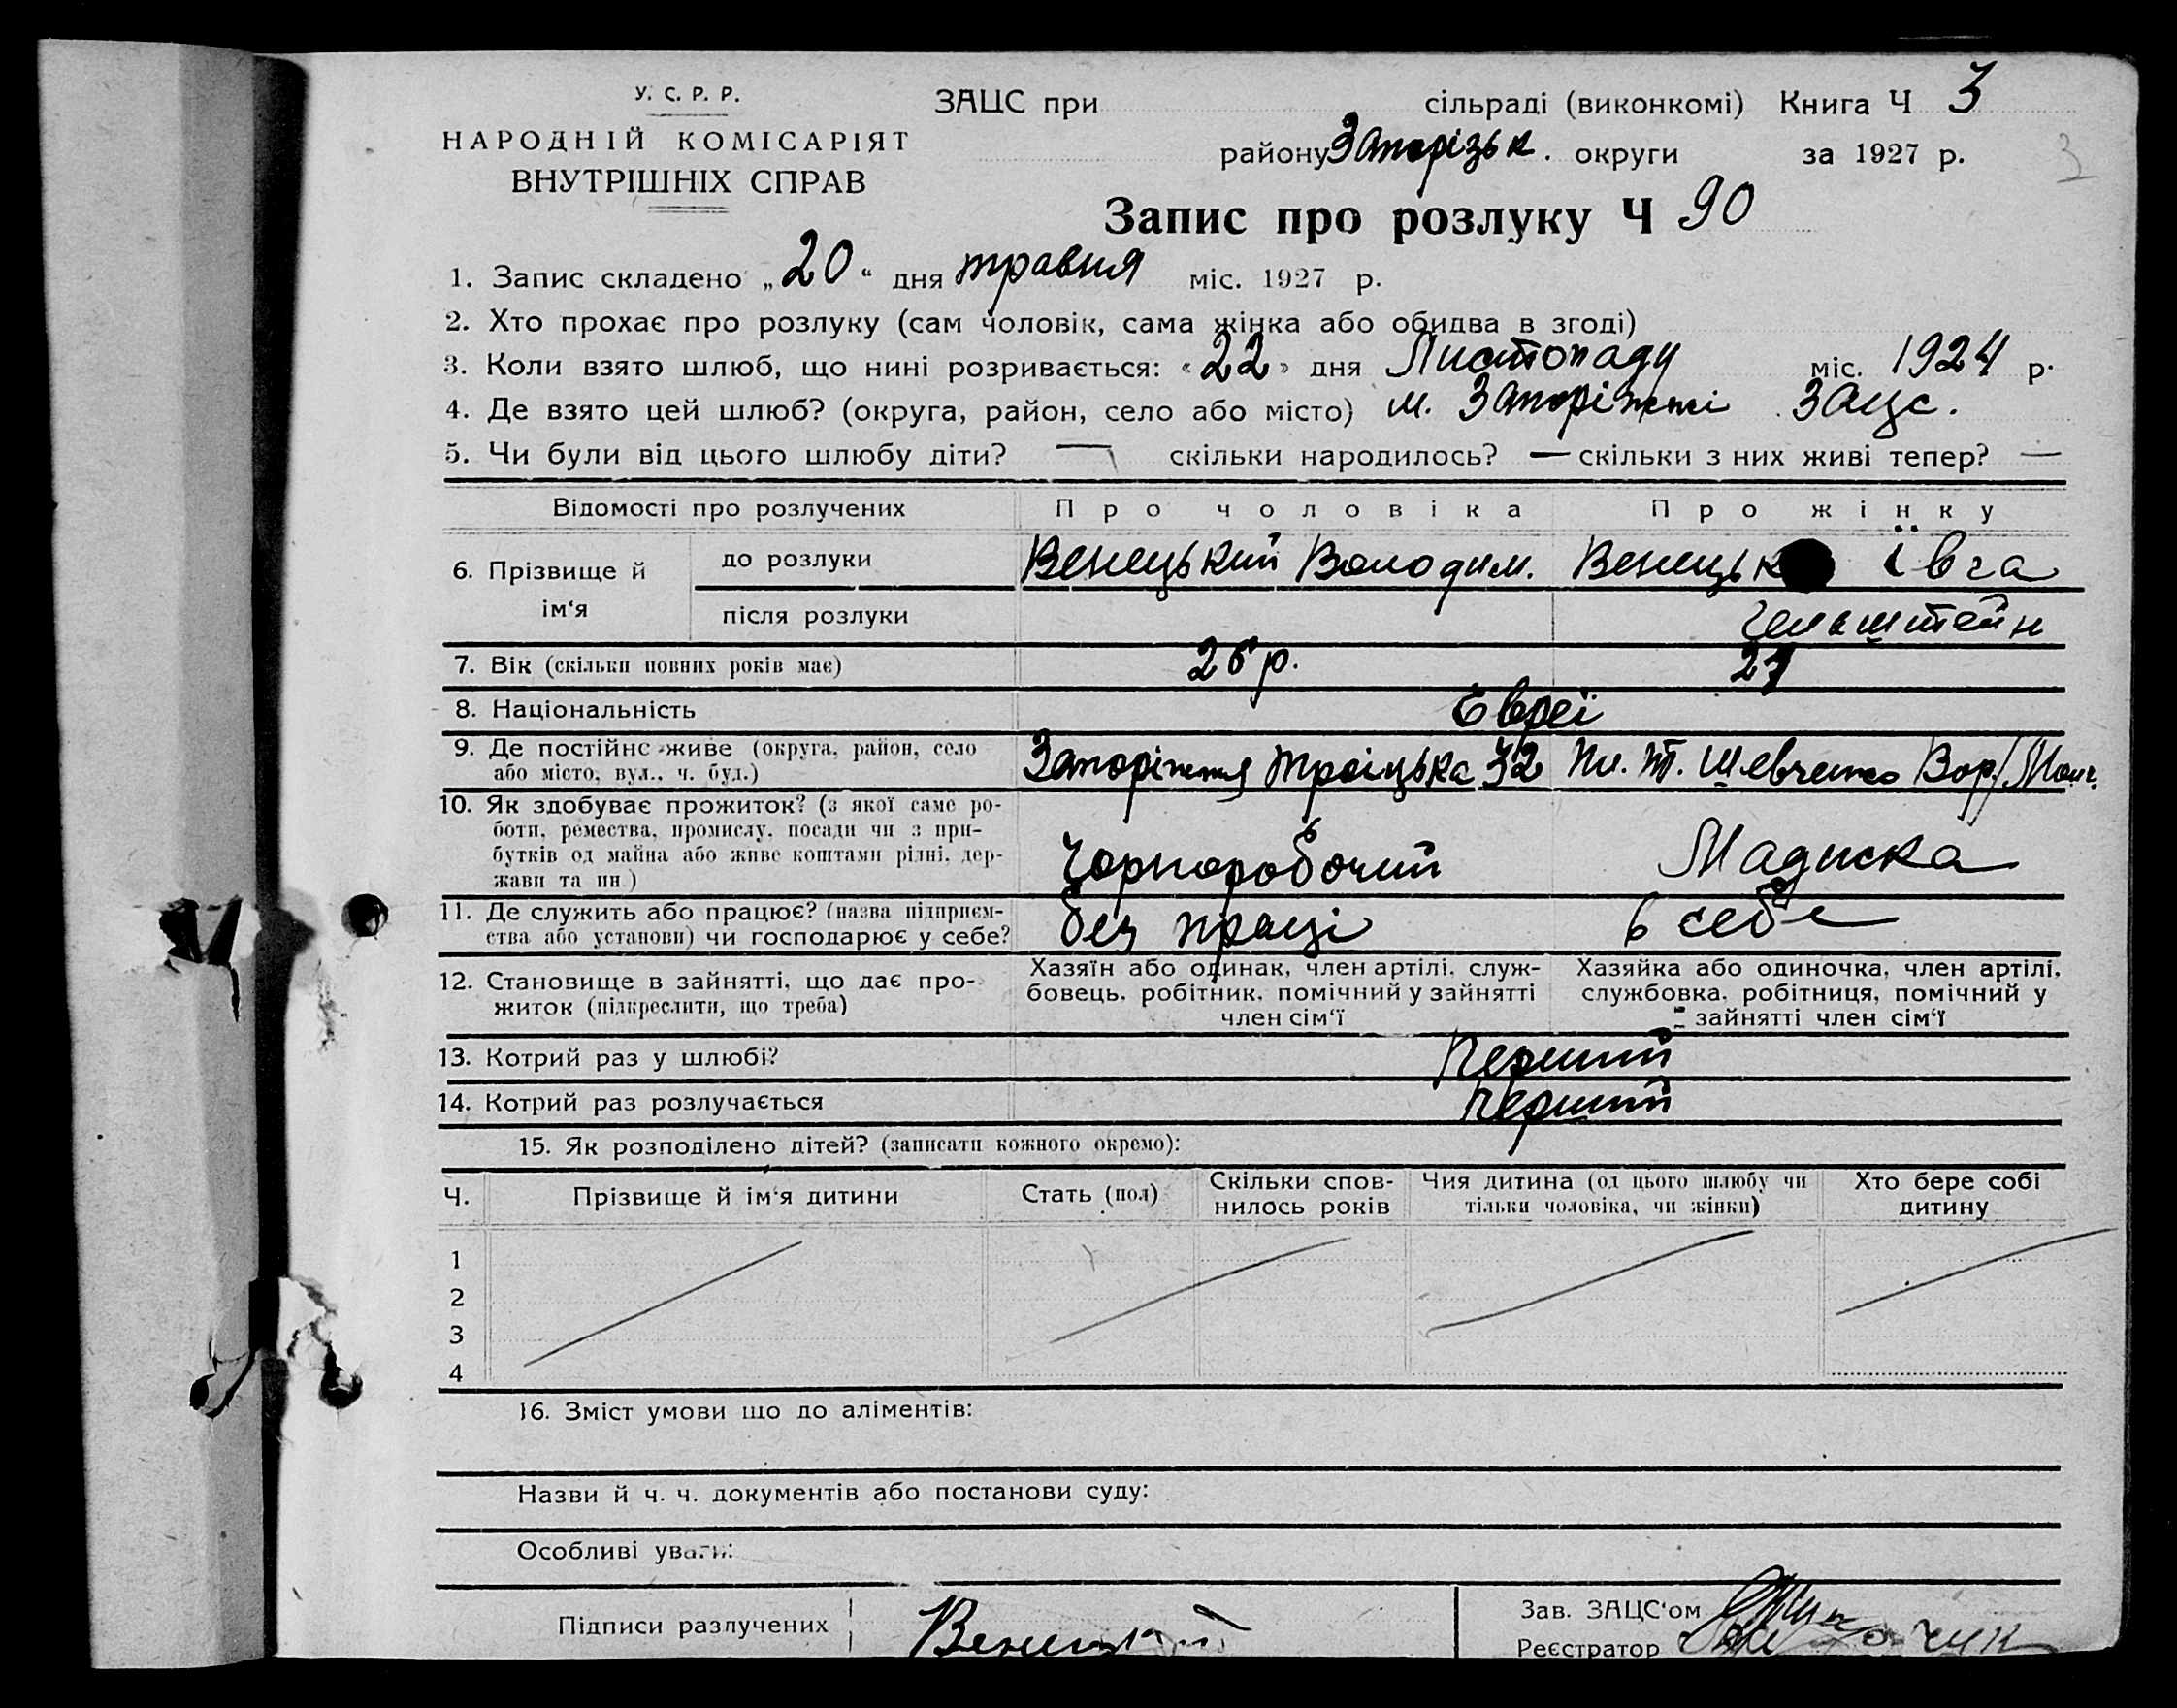 У. С. Р. Р.
НАРОДНІЙ КОМІСАРІЯТ
ВНУТРІШНІХ СПРАВ
ЗАЦС при сільраді (виконкомі) Книга Ч 3
району Запорізьк. округи за 1927 р.
3
Запис про розлуку Ч 90
1. Запис складено „20“ дня травня міс. 1927 р.
2. Хто прохає про розлуку (сам чоловік, сама жінка або обидва в згоді)
3. Коли взято шлюб, що нині розривається: «22» дня Листопаду міс. 1924 р.
4. Де взято цей шлюб? (округа, район, село або місто) м. Запоріжжі Зацс.
5. Чи були від цього шлюбу діти? — скільки народилось? — скільки з них живі тепер? —
Відомості про розлучених Про чоловіка Про жінку
6. Прізвище й ім‘я до розлуки Венецький Володим. Венецьк Івга
після розлуки
7. Вік (скільки повних років має) 26 р.
8. Національність Євреї
9. Де постійнс живе (округа, район, село або місто, вул., ч. буд.) Запоріжжя Троіцька 32 Пл. Т. Шевченко
10. Як здобуває прожиток? (з якої саме роботи, ремества, промислу, посади чи з прибутків од майна або живе коштами рідні, держави та ин.) Чорноробочий Мадиска
11. Де служить або працює? (назва підприємства або установи) чи господарює у себе? без праці в себе
12. Становище в зайнятті, що дає прожиток (підкреслити, що треба)
Хазяїн або одинак, член артілі, службовець, робітник, помічний у зайнятті член сім‘ї
Хазяйка або одиночка, член артілі, службовка, робітниця, помічний у зайнятті член сім‘ї
13. Котрий раз у шлюбі? Перший
14. Котрий раз розлучається Перший
15. Як розподілено дітей? (записати кожного окремо):
Ч. Прізвище й ім‘я дитини Стать (пол) Скільки сповнилось років Чия дитина (од цього шлюбу чи тільки чоловіка, чи жінки) Хто бере собі дитину
1
2
3
4
16. Зміст умови що до аліментів:
Назви й ч. ч. документів або постанови суду:
Особливі уваги:
Підписи разлучених Венецький
Зав. ЗАЦС‘ом
Реєстратор